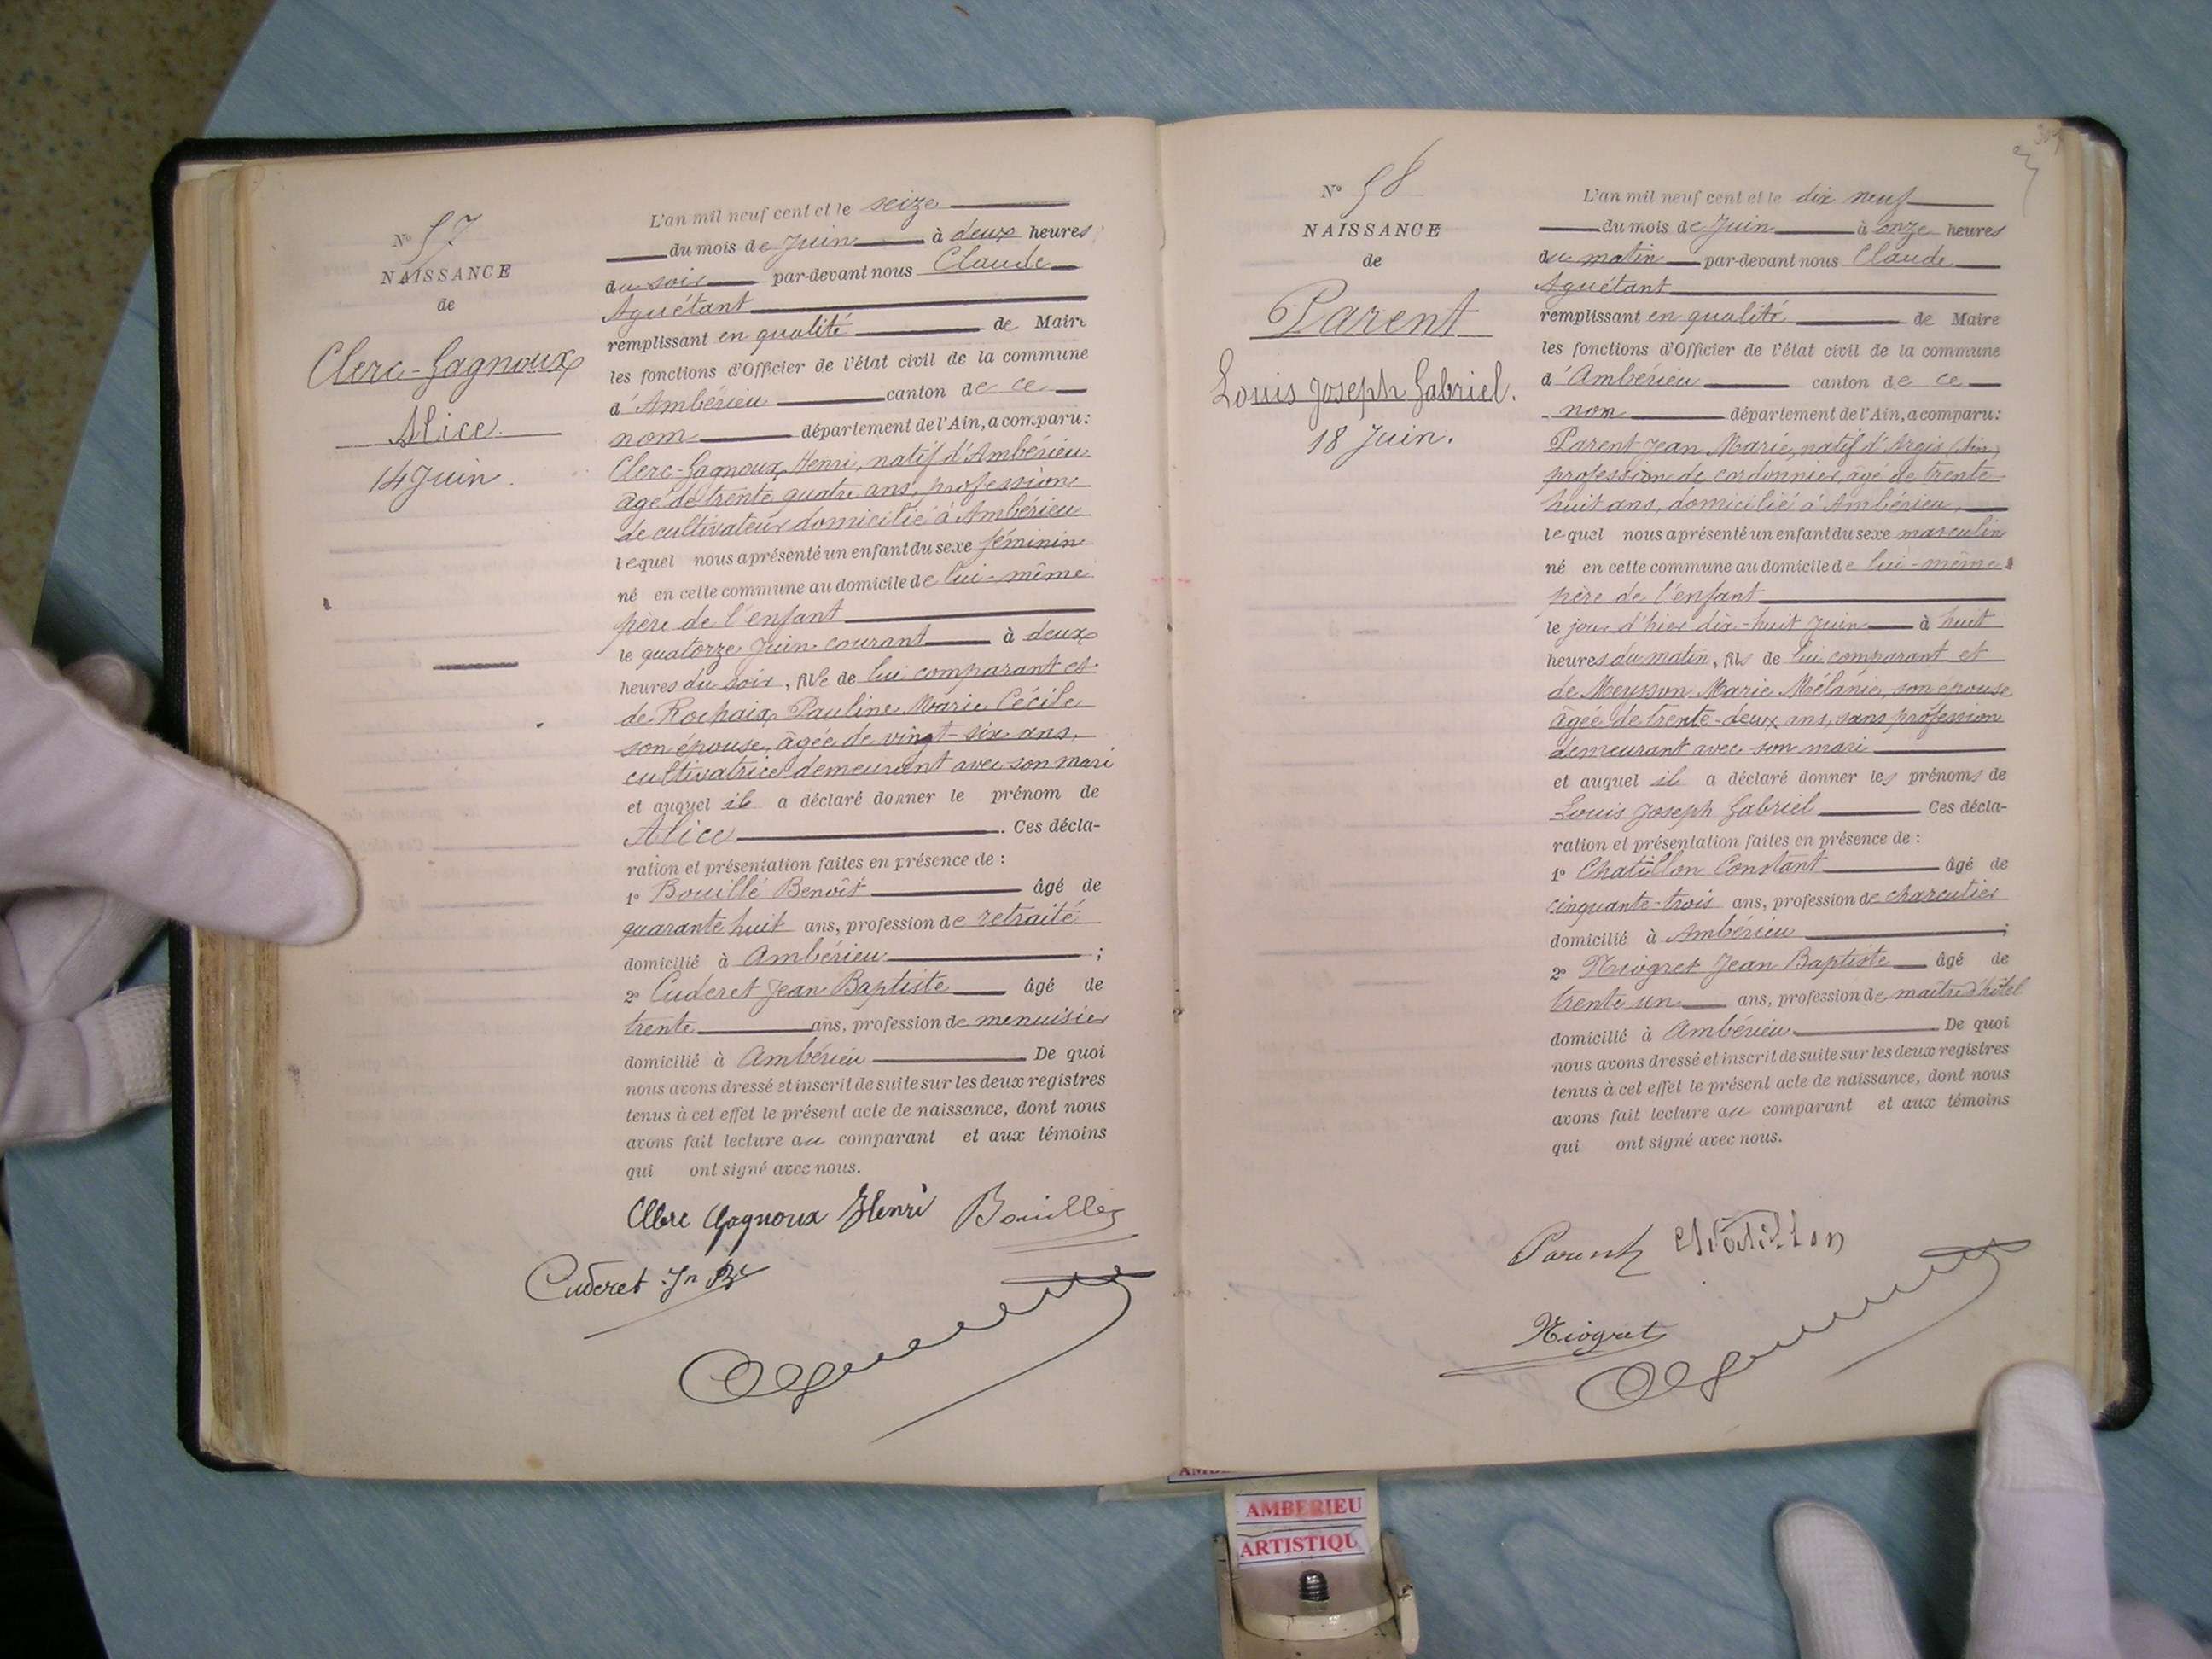 Nº 57
NAISSANCE
de
Clerc-Gagnoux
Alice
14 Juin.
L'an mil neuf cent et le seize
du mois de Juin à deux heures
du soir par-devant nous Claude
Aguétant
remplissant en qualité de Maire
les fonctions d'Officier de l'état civil de la commune
d'Ambérieu canton de ce
nom département de l'Ain, a comparu:
Clerc-Gagnoux, Henri, natif d'Ambérieu
âgé de trente quatre ans, profession
de cultivateur domicilié à Ambérieu
lequel nous a présenté un enfant du sexe féminin
né en cette commune au domicile de lui-même
père de l'enfant
le quatorze Juin courant à deux
heures du soir, fille de lui comparant et
de Rochaix Pauline Marie Cécile
son épouse, âgée de vingt-six ans,
cultivatrice demeurant avec son mari
et auquel il a déclaré donner le prénom de
Alice. Ces décla-
ration et présentation faites en présence de :
1º Bouillé Benoît âgé de
quarante huit ans, profession de retraité
domicilié à Ambérieu ;
2º Cuderet Jean Baptiste âgé de
trente ans, profession de menuisier
domicilié à Ambérieu De quoi
nous avons dressé et inscrit de suite sur les deux registres
tenus à cet effet le présent acte de naissance, dont nous
avons fait lecture au comparant et aux témoins
qui ont signé avec nous.
Clerc Gagnoux Henri Bouillé
Cuderet Jn Bte
Nº 58
NAISSANCE
de
Parent
Louis Joseph Gabriel.
18 Juin.
L'an mil neuf cent et le dix neuf
du mois de Juin à onze heures
du matin par-devant nous Claude
Aguétant
remplissant en qualité de Maire
les fonctions d'Officier de l'état civil de la commune
d'Ambérieu canton de ce
nom département de l'Ain, a comparu:
Parent Jean Marie, natif d'Argis (Ain)
profession de cordonnier, âgé de trente
huit ans, domicilié à Ambérieu
lequel nous a présenté un enfant du sexe masculin
né en cette commune au domicile de lui-même
père de l'enfant
le jour d'hier dix-huit Juin à huit
heures du matin, fils de lui comparant et
de Meysson Marie Mélanie, son épouse
âgée de trente-deux ans, sans profession
demeurant avec son mari
et auquel il a déclaré donner les prénoms de
Louis Joseph Gabriel Ces décla-
ration et présentation faites en présence de :
1º Chatillon Constant âgé de
cinquante-trois ans, profession de charcutier
domicilié à Ambérieu ;
2º Niogret Jean Baptiste âgé de
trente un ans, profession de maître d'hôtel
domicilié à Ambérieu De quoi
nous avons dressé et inscrit de suite sur les deux registres
tenus à cet effet le présent acte de naissance, dont nous
avons fait lecture au comparant et aux témoins
qui ont signé avec nous.
Parent Chatillon
Niogret
AMBERIEU
ARTISTIQU